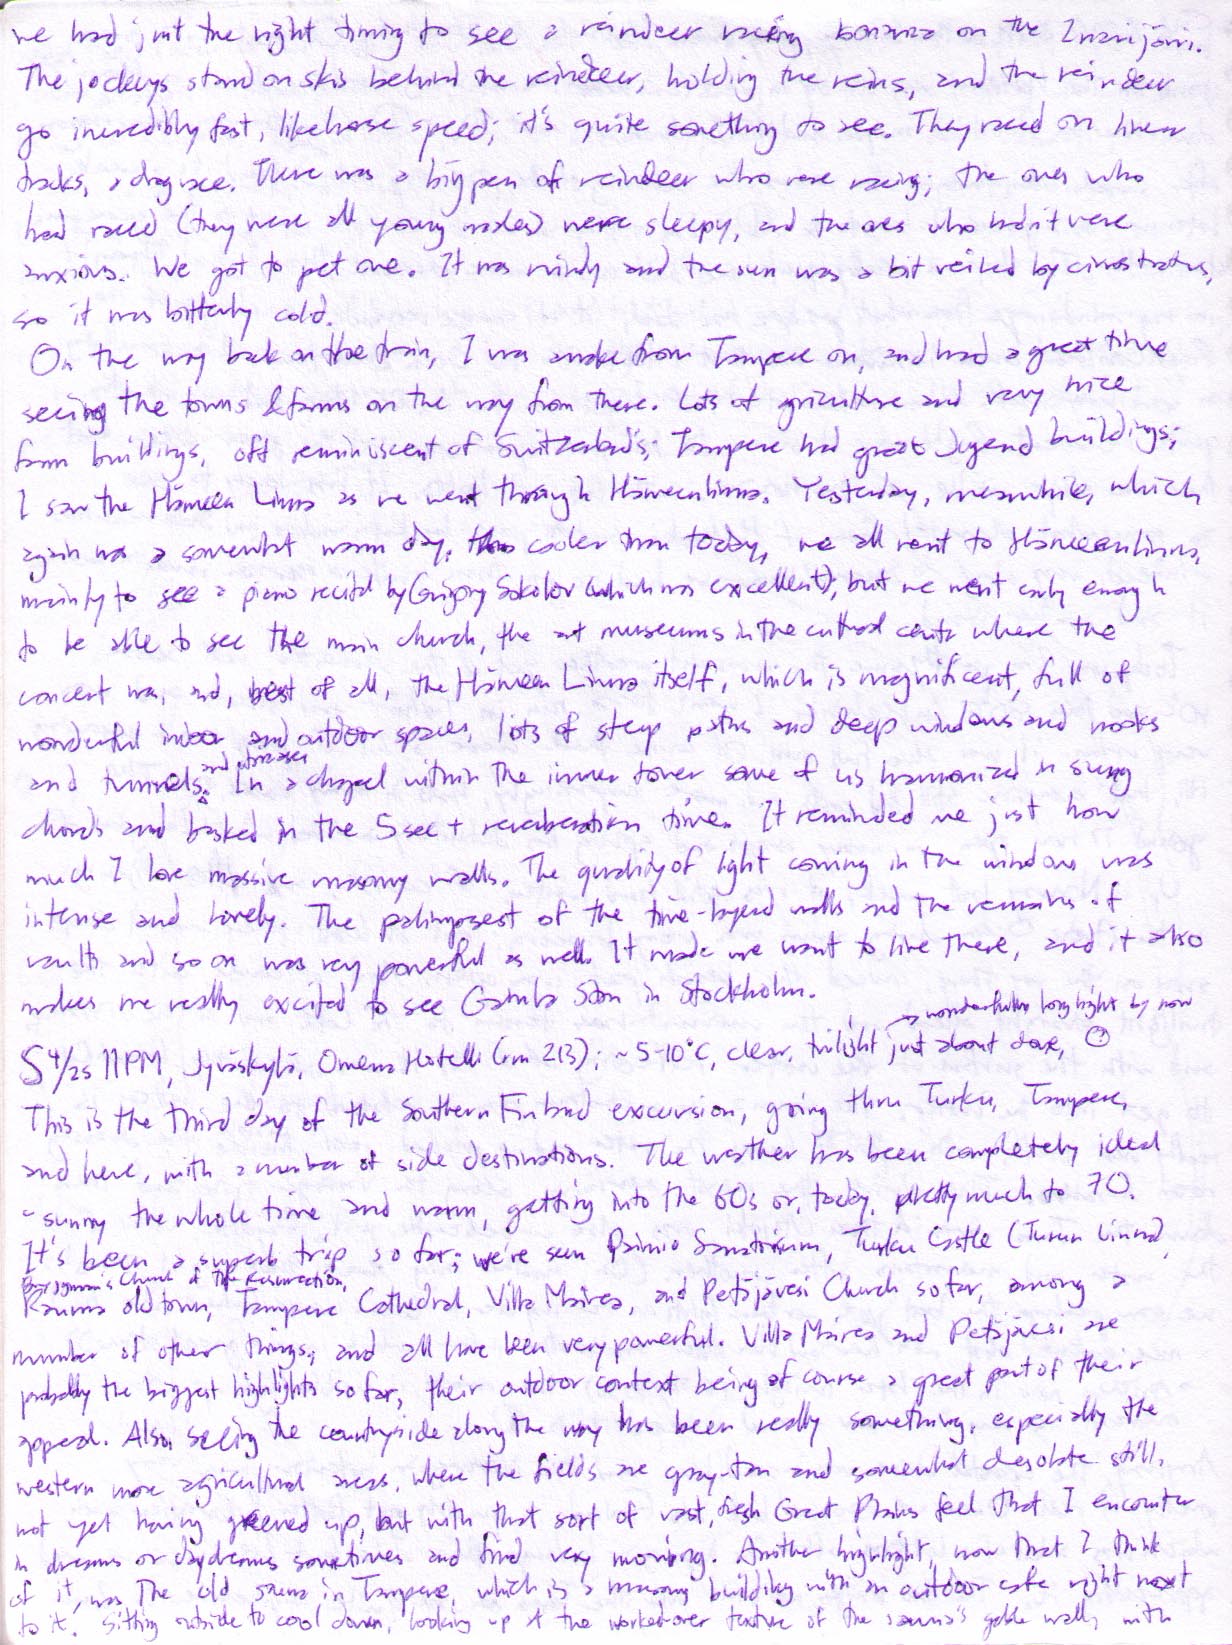 we had just the right timing to see a reindeer racing bonanza on the Inarijärvi.
The jockeys stand on skis behind the reindeer, holding the reins, and the reindeer
go incredibly fast, like horse speed; it's quite something to see. They raced on linear
tracks, a drag race. There was a big pen of reindeer who were racing; the ones who
had raced (they were all young males) were sleepy, and the ones who hadn't were
anxious. We got to pet one. It was windy and the sun was a bit veiled by cirrostratus,
so it was bitterly cold.
On the way back on the train, I was awake from Tampere on, and had a great time
seeing the towns & farms on the way from there. Lots of agriculture and very nice
farm buildings, oft reminiscent of Switzerland's; Tampere had great Jugend buildings;
I saw the Hämeen Linna as we went through Hämeenlinna. Yesterday, meanwhile, which
again was a somewhat warm day, tho cooler than today, we all went to Hämeenlinna,
mainly to see a piano recital by Grigory Sokolov (which was excellent); but we went early enough
to be able to see the main church, the art museums in the cultural center where the
concert was, and, best of all, the Hämeen Linna itself, which is magnificent, full of
wonderful indoor and outdoor spaces, lots of steep paths and deep windows and nooks
and tunnels and staircases. In a chapel within the inner tower some of us harmonized in sung
chords and basked in the 5 sec + reverberation time. It reminded me just how
much I love massive masonry walls. The quality of light coming in the windows was
intense and lovely. The palimpsest of the time-layered walls and the remains of
vaults and so on was very powerful as well. It made me want to live there, and it also
makes me really excited to see Gamla Stan in Stockholm.
→ wonderfully long light by now
S 4/25 11PM, Jyväskylä, Omena Hotelli (rm 213); ~5-10°C, clear, twilight just about done, ☺
This is the third day of the Southern Finland excursion, going thru Turku, Tampere,
and here, with a number of side destinations. The weather has been completely ideal
- sunny the whole time and warm, getting into the 60s or, today, pretty much to 70.
It's been a superb trip so far; we've seen Paimio Sanatorium, Turku Castle (Turun Linna),
Bryggman's Church of the Resurrection,
Rauma old town, Tampere Cathedral, Villa Mairea, and Petäjävesi Church so far, among a
number of other things; and all have been very powerful. Villa Mairea and Petäjävesi are
probably the biggest highlights so far, their outdoor context being of course a great part of their
appeal. Also, seeing the countryside along the way has been really something, especially the
western more agricultural areas, where the fields are gray-tan and somewhat desolate still,
not yet having greened up, but with that sort of vast, fresh Great Plains feel that I encounter
in dreams or daydreams sometimes and find very moving. Another highlight, now that I think
of it, was the old sauna in Tampere, which is a masonry building with an outdoor cafe right next
to it. Sitting outside to cool down, looking up at the worked-over texture of the sauna's gable wall, with